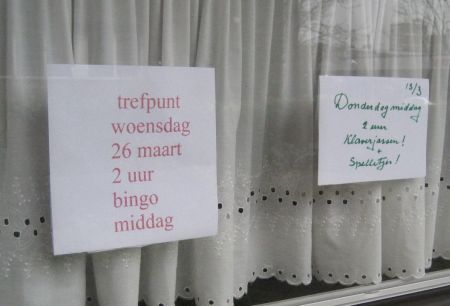 trefpunt
woensdag
26 maart
2 uur
bingo
middag
13/3
Donderdag middag
2 uur
Klaverjassen!
+
Spelletjes!